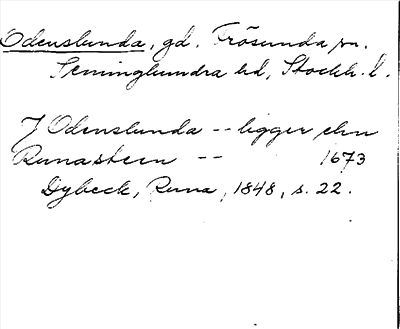 Odenslunda, gd. Frösunda sn.
Seminghundra hd, Stockh. l.
I Odenslunda -- ligger elnn
Runasteen -- 1673
Dybeck, Runa, 1848, s. 22.